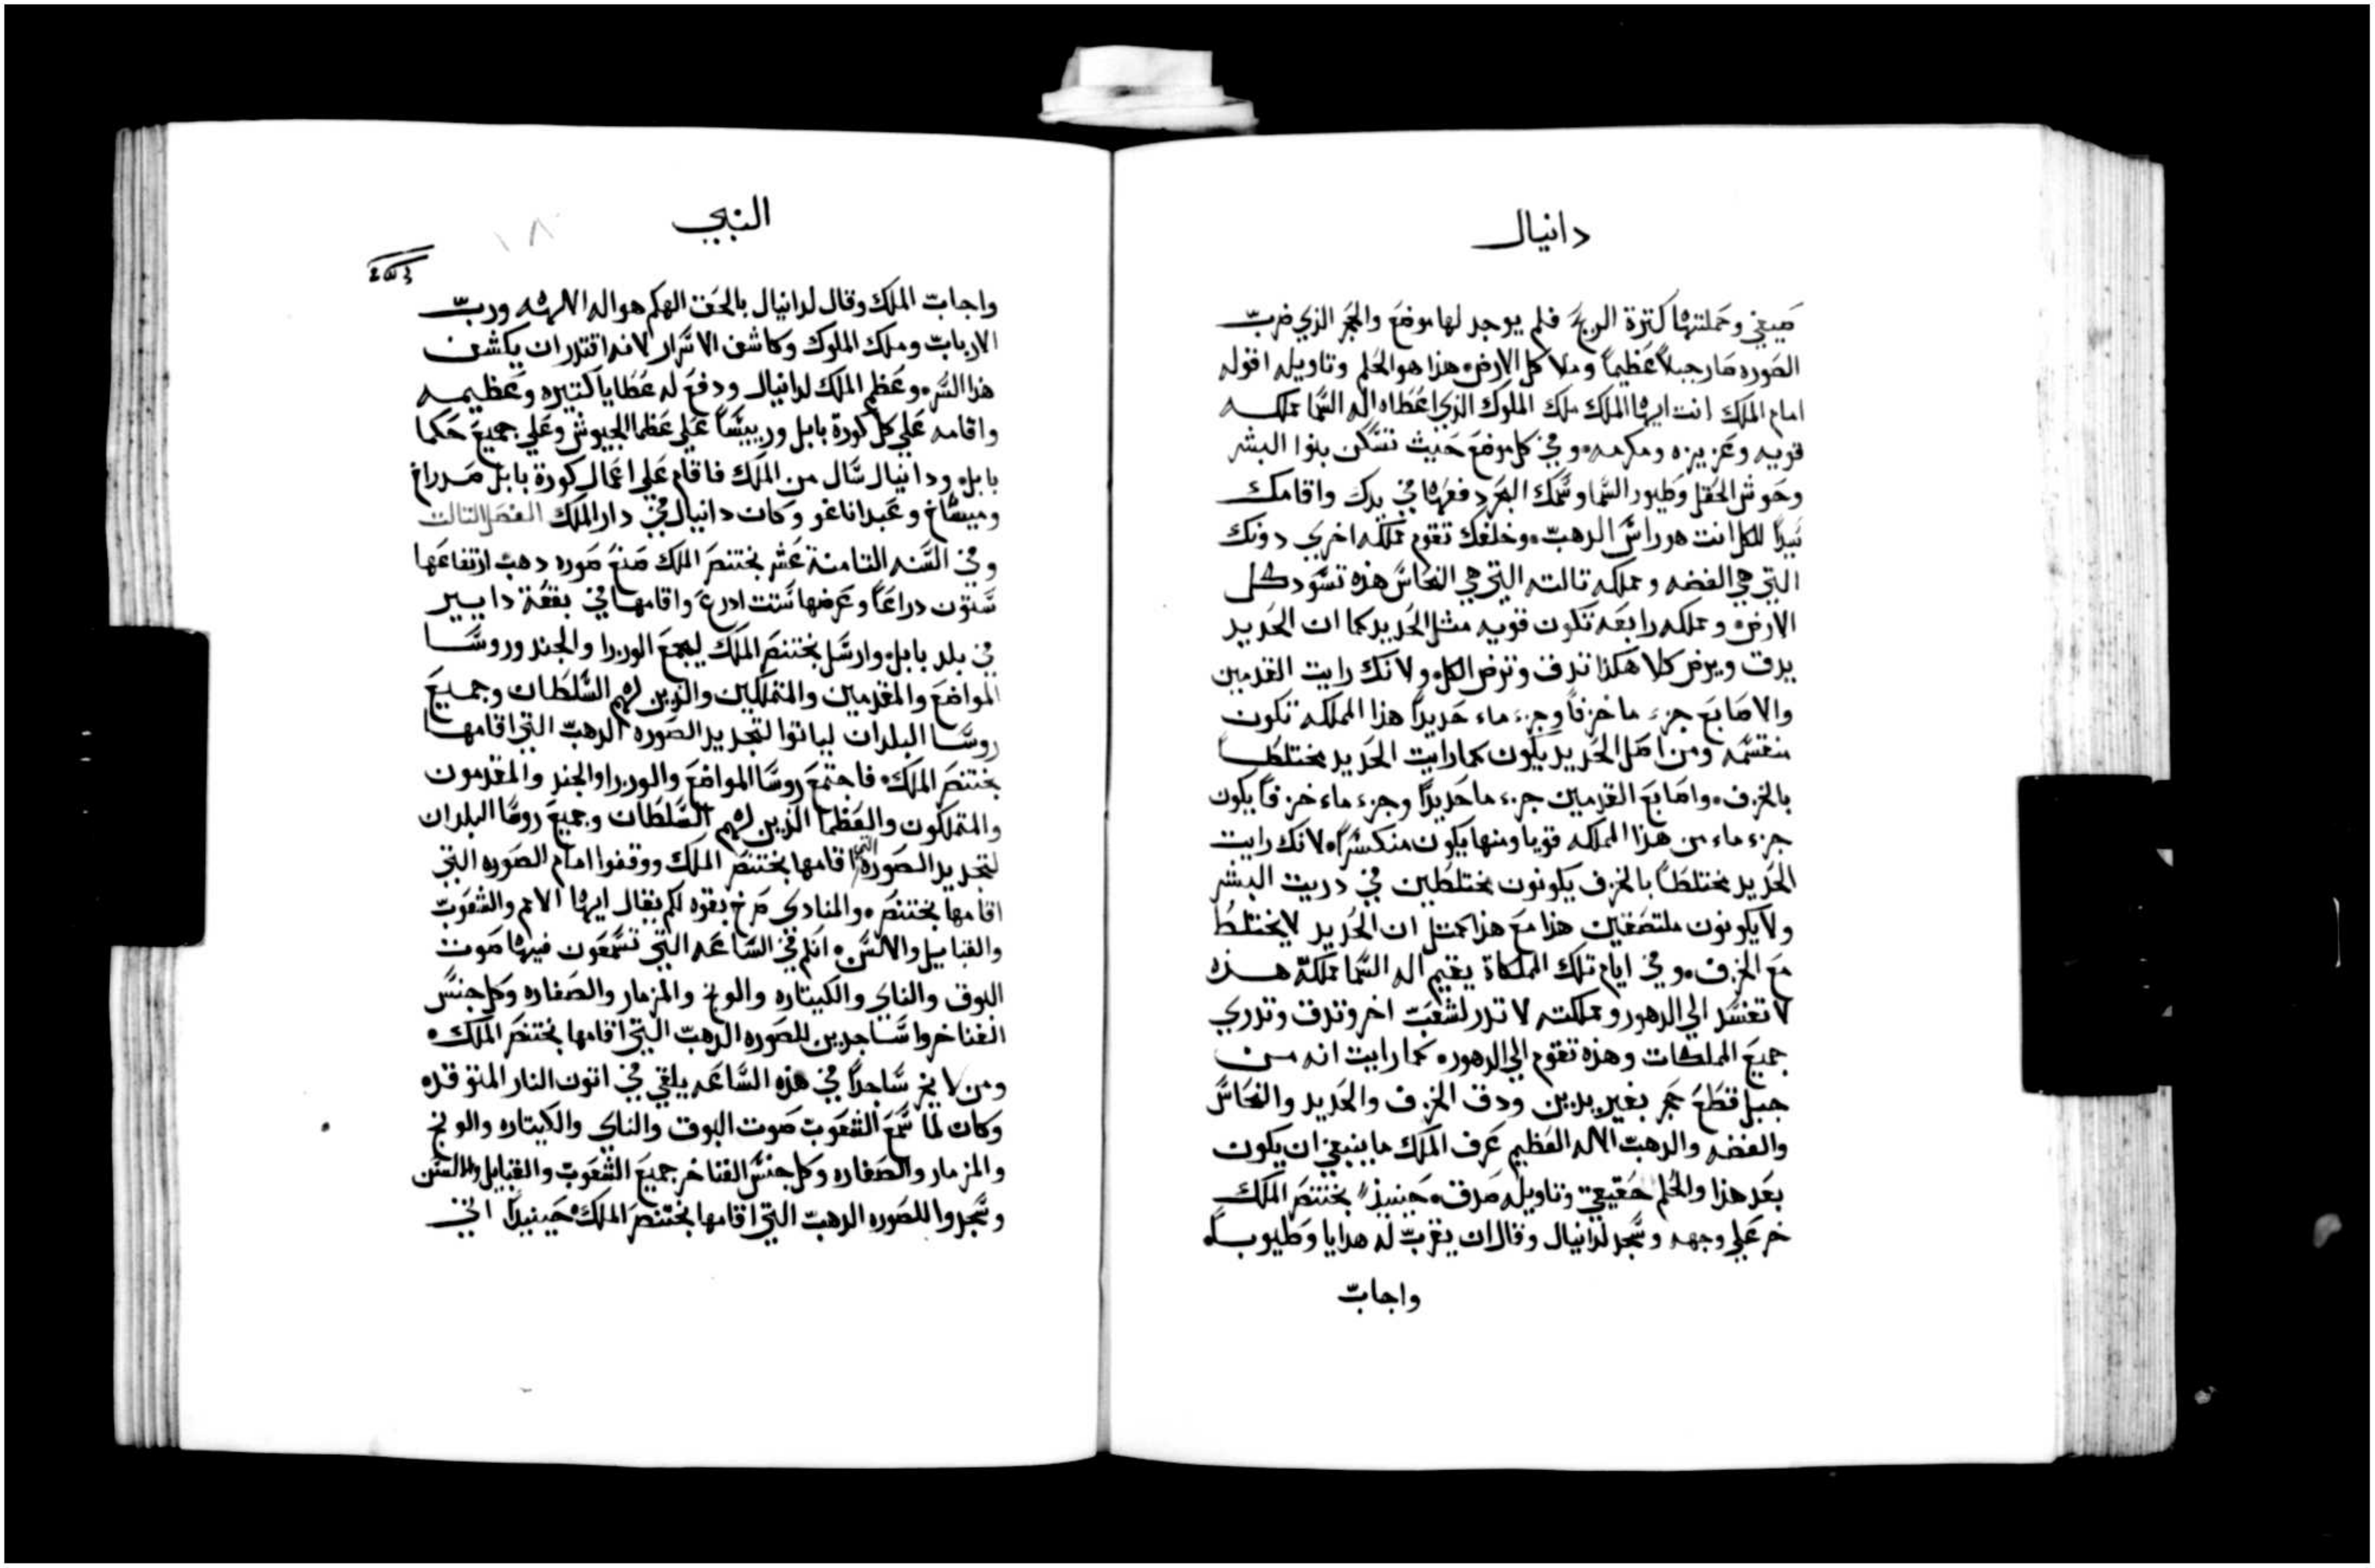 دانيال
صيفي وحملتها كترة الريح فلم يوجد لها موضع والحجر الذي ضرب
الصوره صار جبلاً عظيماً وملا كل الارض هذا هو الحلم وتاويله اقوله
امام الملك انت ايها الملك ملك الملوك الذي اعطاه اله السما مملكه
قويه وعزيزه ومكرمه وفي كل موضع حيث تسكن بنوا البشر
وحوش الحقل وطيور السما وسمك البحر دفعها في يدك واقامك
سيداً للكل انت هو راس الدهب وخلفك تقوم مملكه اخري دونك
التي هي الفضه ومملكه تالته التي هي النحاس هذه تسود كل
الارض ومملكه رابعه تكون قويه متل الحديد كما ان الحديد
يدق ويرض كلا هكذا تدق وترض الكل ولانك رايت القدمين
والاصابع جزء ما خزفاً وجزء ماء حديداً هذا المملكه تكون
منقسمه ومن اصل الحديد يكون كما رايت الحديد مختلطاً
بالخزف واصابع القدمين جزء ما حديداً وجزء ماء خزفاً يكون
جزء ماء من هذا المملكه قويا ومنها يكون منكسراً لانك رايت
الحديد مختلطاً بالخزف يكونون مختلطين في دريت البشر
ولا يكونون ملتصقين هذا مع هذا كمتل ان الحديد لا يختلط
مع الخزف وفي ايام تلك المملكاة يقيم اله السما مملكة هذه
لا تفسد الي الدهور ومملكته لا تدر لشعب اخر وتدق وتدري
جميع المملكات وهذه تقوم الي الدهور كما رايت انه من
جبل قطع حجر بغير يدين ودق الخزف والحديد والنحاس
والفضه والدهب الاله العظيم عرف الملك ما ينبغي ان يكون
بعد هذا والحلم حقيقي وتاويله صدق حينيذ بختنصر الملك
خر علي وجهه وسجد لدانيال وقال ان يقرب له هدايا وطيوباً
واجاب
النبي
١٨
واجاب الملك وقال لدانيال بالحق الهكم هو اله الالهه ورب
الارباب وملك الملوك وكاشف الاسرار لانه اقتدر ان يكشف
هذا السر وعظم الملك لدانيال ودفع له عطايا كتيره وعظيمه
واقامه علي كل كورة بابل ورييساً علي عظما الجيوش وعلي جميع حكما
بابل ودانيال سال من الملك فاقام علي اعمال كورة بابل صدراخ
وميساخ وعبداناغو وكان دانيال في دار الملك الفصل التالت
وفي السنه التامنة عشر بختنصر الملك صنع صوره دهب ارتفاعها
ستون دراعاً وعرضها ستت ادرع واقامها في بقعة دايير
في بلد بابل وارسل بختنصر الملك ليجمع الوزرا والجند وروسا
المواضع والمقدمين والمتملكين والدين لهم السلطان وجميع
روسا البلدان لياتوا لتجديد الصوره الدهب التي اقامها
بختنصر الملك فاجتمع روسا المواضع والوزرا والجند والمقدمون
والمتملكون والعظما الدين لهم السلطان وجميع روسا البلدان
لتجديد الصورة التي اقامها بختنصر الملك ووقفوا امام الصوره التي
اقامها بختنصر والمنادي صرخ بقوه لكم يقال ايها الامم والشعوب
والقبايل والالسن انكم في الساعه التي تسمعون فيها صوت
البوق والناي والكيتاره والونج والمزمار والصفاره وكل جنس
الغنا خروا ساجدين للصوره الدهب التي اقامها بختنصر الملك
ومن لا يخر ساجداً في هذه الساعه يلقي في اتون النار المتوقده
وكان لما سمع الشعوب صوت البوق والناي والكيتاره والونج
والمزمار والصفاره وكل جنس الغنا خر جميع الشعوب والقبايل والالسن
وسجدوا للصوره الدهب التي اقامها بختنصر الملك حينيداً اتي